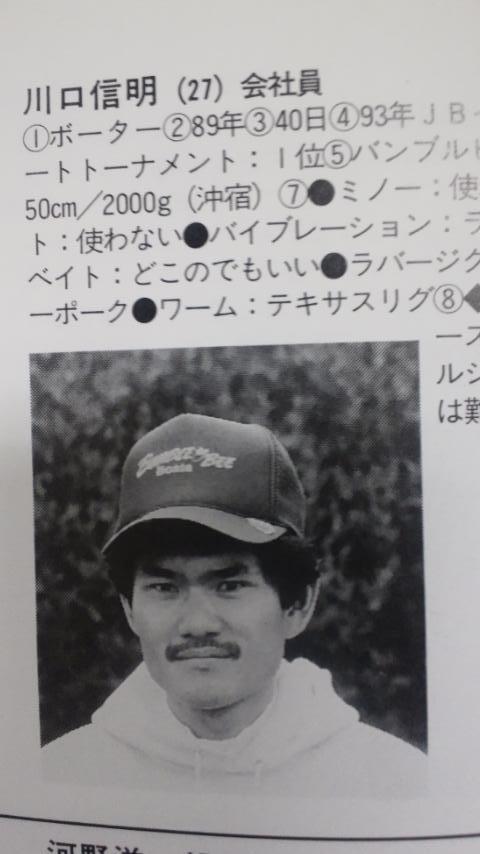 川口信明（27）会社員
①ボーター②89年③40日④93年ＪＢ
ートトーナメント：１位⑤バンブル
50cm／2000g（沖宿）⑦●ミノー：使
ト：使わない●バイブレーション：ラ
ベイト：どこのでもいい●ラバージグ
ーポーク●ワーム：テキサスリグ⑧◆
ース
ルシ
は難
BUMBLE BEE
Boats
河野